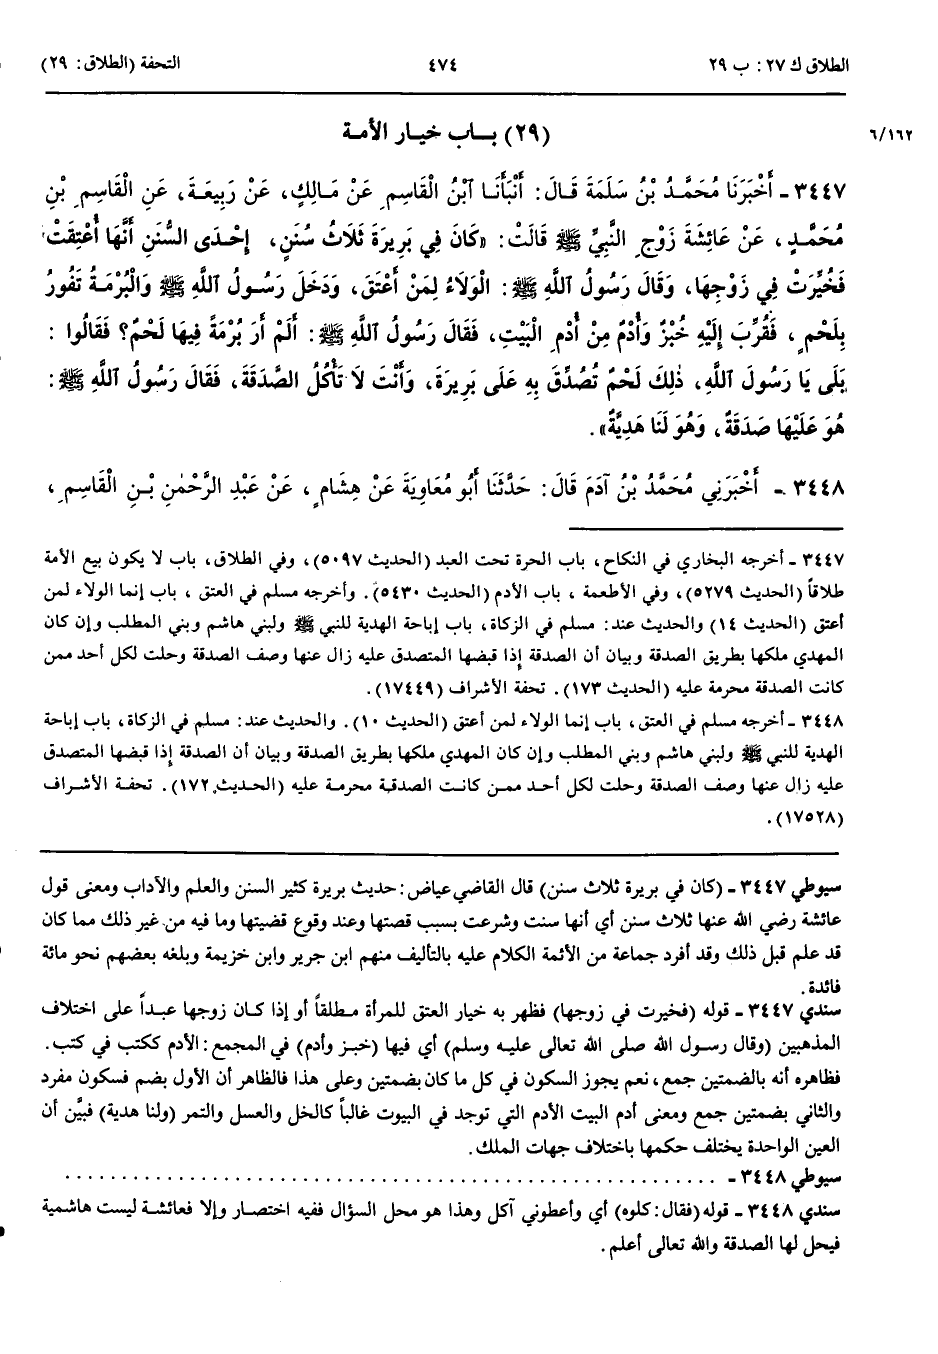 الطلاق ك ٢٧: ب ٢٩
٤٧٤
التحفة (الطلاق: ٢٩)
٦/١٦٢
(٢٩) بـاب خيـار الأمـة
٣٤٤٧ - أَخْبَرَنَا مُحَمَّدُ بْنُ سَلَمَةَ قَالَ: أَنْبَأَنَا ٱبْنُ الْقَاسِمِ عَنْ مَالِكٍ، عَنْ رَبِيعَةَ، عَنِ الْقَاسِمِ بْنِ
مُحَمَّدٍ، عَنْ عَائِشَةَ زَوْجِ النَّبِيِّ ﷺ قَالَتْ: «كَانَ فِي بَرِيرَةَ ثَلَاثُ سُنَنٍ، إِحْدَى السُّنَنِ أَنَّهَا أُعْتِقَتْ
فَخُيِّرَتْ فِي زَوْجِهَا، وَقَالَ رَسُولُ اللَّهِ ﷺ: الْوَلَاءُ لِمَنْ أَعْتَقَ، وَدَخَلَ رَسُولُ ٱللَّهِ ﷺ وَالْبُرْمَةُ تَفُورُ
بِلَحْمٍ، فَقُرِّبَ إِلَيْهِ خُبْزٌ وَأُدْمٌ مِنْ أُدْمِ الْبَيْتِ، فَقَالَ رَسُولُ ٱللَّهِ ﷺ: أَلَمْ أَرَ بُرْمَةً فِيهَا لَحْمٌ؟ فَقَالُوا:
بَلَى يَا رَسُولَ ٱللَّهِ، ذٰلِكَ لَحْمٌ تُصُدِّقَ بِهِ عَلَى بَرِيرَةَ، وَأَنْتَ لَا تَأْكُلُ الصَّدَقَةَ، فَقَالَ رَسُولُ ٱللَّهِ ﷺ:
هُوَ عَلَيْهَا صَدَقَةٌ، وَهُوَ لَنَا هَدِيَّةٌ».
٣٤٤٨ - أَخْبَرَنِي مُحَمَّدُ بْنُ آدَمَ قَالَ: حَدَّثَنَا أَبُو مُعَاوِيَةَ عَنْ هِشَامٍ، عَنْ عَبْدِ الرَّحْمٰنِ بْنِ الْقَاسِمِ،
٣٤٤٧ - أخرجه البخاري في النكاح، باب الحرة تحت العبد (الحديث ٥٠٩٧)، وفي الطلاق، باب لا يكون بيع الأمة
طلاقاً (الحديث ٥٢٧٩)، وفي الأطعمة، باب الأدم (الحديث ٥٤٣٠). وأخرجه مسلم في العتق، باب إنما الولاء لمن
أعتق (الحديث ١٤) والحديث عند: مسلم في الزكاة، باب إباحة الهدية للنبي ﷺ ولبني هاشم وبني المطلب وإن كان
المهدي ملكها بطريق الصدقة وبيان أن الصدقة إذا قبضها المتصدق عليه زال عنها وصف الصدقة وحلت لكل أحد ممن
كانت الصدقة محرمة عليه (الحديث ١٧٣). تحفة الأشراف (١٧٤٤٩).
٣٤٤٨ - أخرجه مسلم في العتق، باب إنما الولاء لمن أعتق (الحديث ١٠). والحديث عند: مسلم في الزكاة، باب إباحة
الهدية للنبي ﷺ ولبني هاشم وبني المطلب وإن كان المهدي ملكها بطريق الصدقة وبيان أن الصدقة إذا قبضها المتصدق
عليه زال عنها وصف الصدقة وحلت لكل أحد ممن كانت الصدقة محرمة عليه (الحديث ١٧٢). تحفة الأشراف
(١٧٥٢٨).
سيوطي ٣٤٤٧ - (كان في بريرة ثلاث سنن) قال القاضي عياض: حديث بريرة كثير السنن والعلم والآداب ومعنى قول
عائشة رضي الله عنها ثلاث سنن أي أنها سنت وشرعت بسبب قصتها وعند وقوع قضيتها وما فيه من غير ذلك مما كان
قد علم قبل ذلك وقد أفرد جماعة من الأئمة الكلام عليه بالتأليف منهم ابن جرير وابن خزيمة وبلغه بعضهم نحو مائة
فائدة.
سندي ٣٤٤٧ - قوله (فخيرت في زوجها) فظهر به خيار العتق للمرأة مطلقاً أو إذا كان زوجها عبداً على اختلاف
المذهبين (وقال رسول الله صلى الله تعالى عليه وسلم) أي فيها (خبز وأدم) في المجمع: الأدم ككتب في كتب.
فظاهره أنه بالضمتين جمع، نعم يجوز السكون في كل ما كان بضمتين وعلى هذا فالظاهر أن الأول بضم فسكون مفرد
والثاني بضمتين جمع ومعنى أدم البيت الأدم التي توجد في البيوت غالباً كالخل والعسل والتمر (ولنا هدية) فبيَّن أن
العين الواحدة يختلف حكمها باختلاف جهات الملك.
سيوطي ٣٤٤٨ - . . . . . . . . . . . . . . . . . . . . . . . . . . . . . . . . . . . . . . . . . . . . . . . . . . . . .
سندي ٣٤٤٨ - قوله (فقال: كلوه) أي وأعطوني آكل وهذا هو محل السؤال ففيه اختصار وإلا فعائشة ليست هاشمية
فيحل لها الصدقة والله تعالى أعلم.